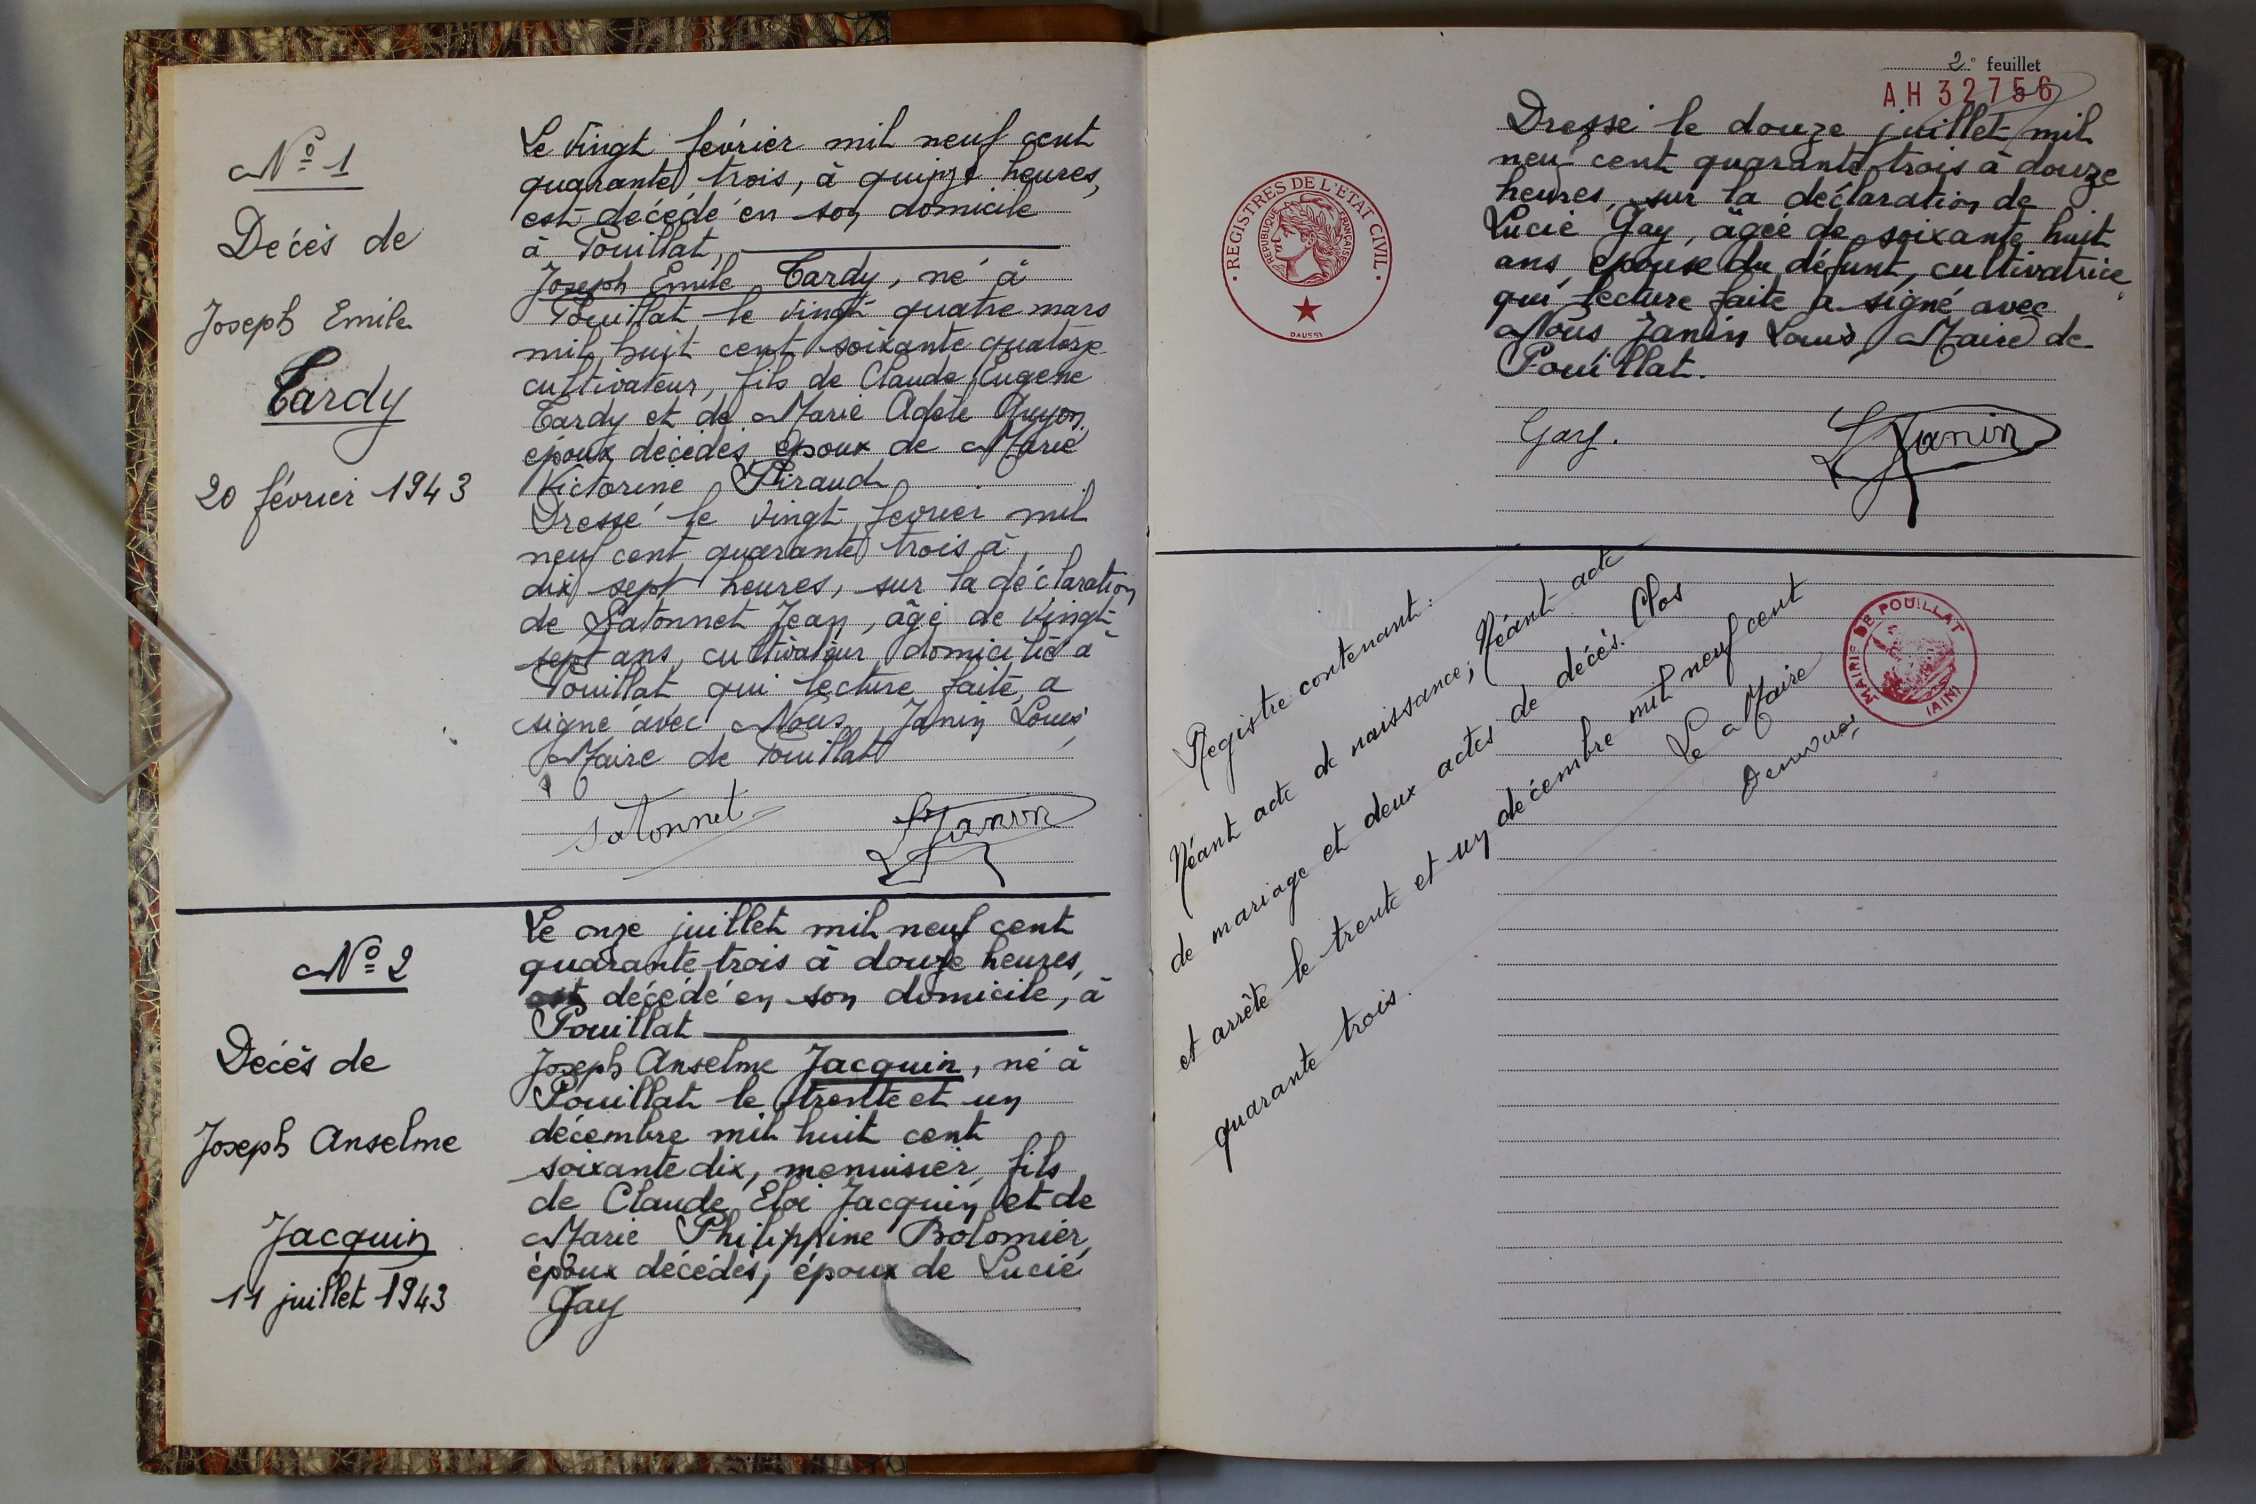 Nº 1
Décès de
Joseph Emile
Tardy
20 février 1943
Le vingt février mil neuf cent
quarante trois, à quinze heures,
est décédé en son domicile
à Pouillat,
Joseph Emile Tardy, né à
Pouillat le vingt quatre mars
mil huit cent soixante quatorze
cultivateur, fils de Claude Eugène
Tardy et de Marie Adèle Guyon,
époux décédés, époux de Marie
Victorine Piraud
Dressé le vingt février mil
neuf cent quarante trois à
dix sept heures, sur la déclaration
de Satonnet Jean, âgé de vingt
sept ans, cultivateur domicilié à
Pouillat qui lecture faite, a
signé avec Nous Janin Louis
Maire de Pouillat
Satonnet
L Janin
Nº 2
Décès de
Joseph Anselme
Jacquin
11 juillet 1943
Le onze juillet mil neuf cent
quarante trois à douze heures,
est décédé en son domicile, à
Pouillat
Joseph Anselme Jacquin, né à
Pouillat le trente et un
décembre mil huit cent
soixante dix, menuisier, fils
de Claude Eloi Jacquin et de
Marie Philippine Bolomier,
époux décédés, époux de Lucie
Gay
2e feuillet
AH 32756
REGISTRES DE L'ETAT CIVIL
REPUBLIQUE FRANÇAISE
DAUSSY
Dressé le douze juillet mil
neuf cent quarante trois à douze
heures, sur la déclaration de
Lucie Gay, âgée de soixante huit
ans épouse du défunt, cultivatrice
qui lecture faite a signé avec
Nous Janin Louis Maire de
Pouillat.
Gay.
L Janin
Registre contenant:
Néant acte de naissance; Néant acte
de mariage et deux actes de décès. Clos
et arrêté le trente et un décembre mil neuf cent
quarante trois.
Le Maire
MAIRIE DE POUILLAT
(AIN)